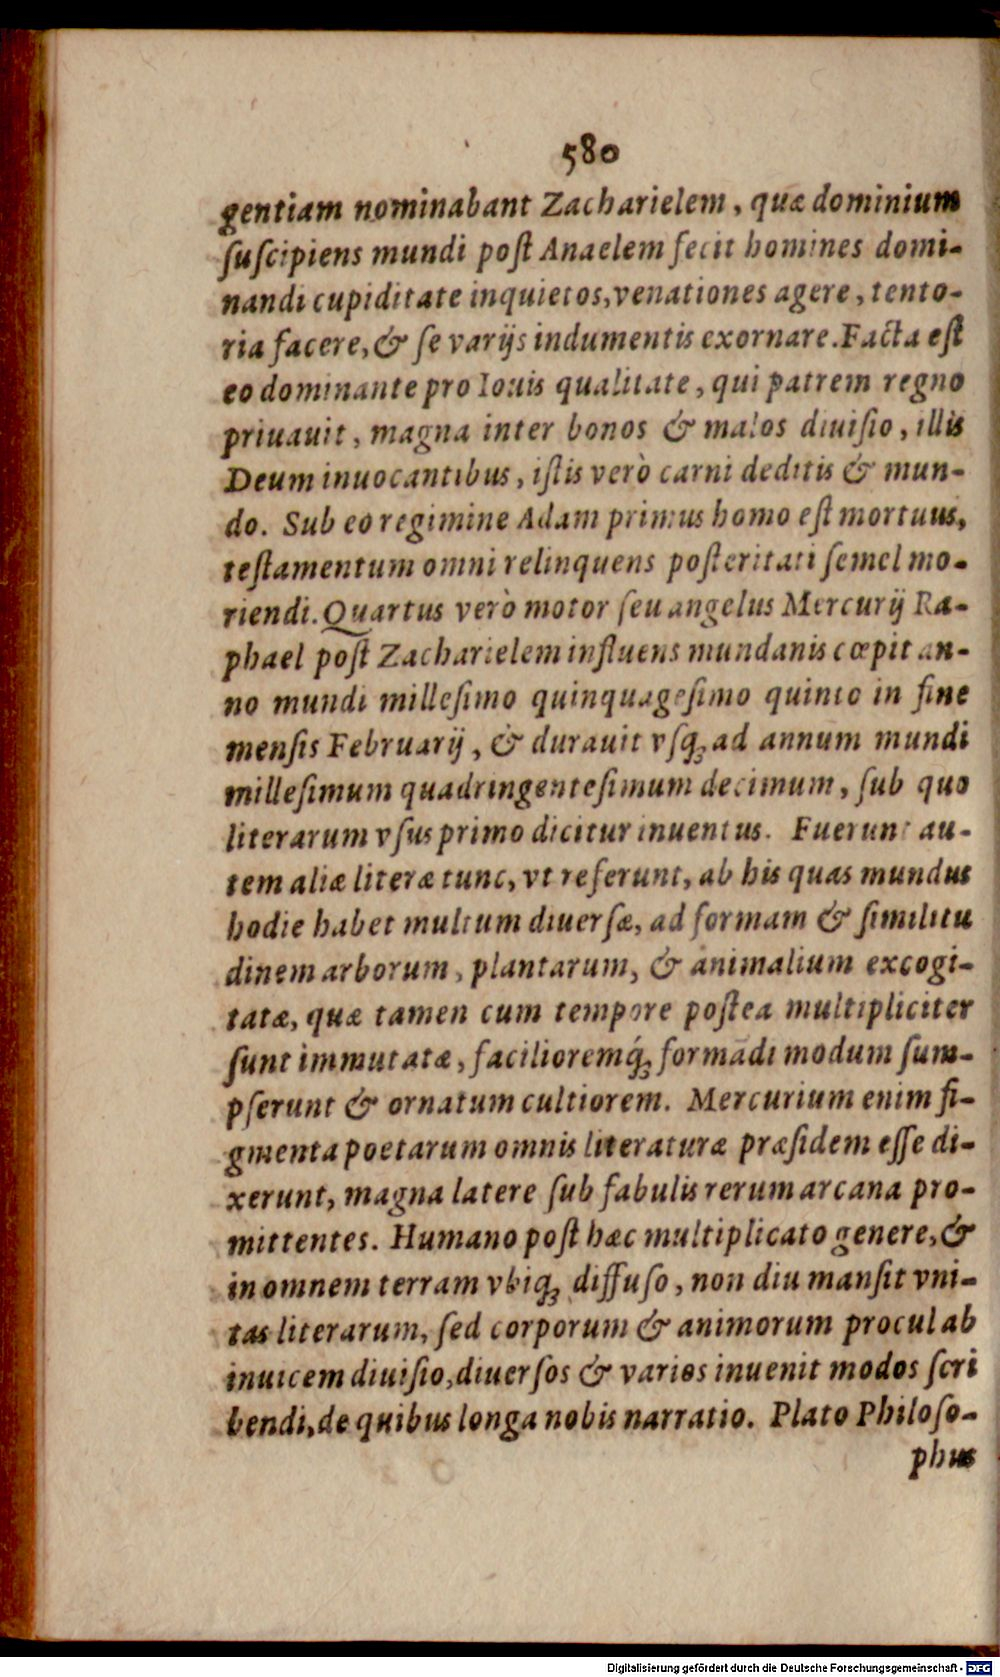 580
gentiam nominabant Zacharielem, quæ dominium
ſuſcipiens mundi poſt Anaelem fecit homines domi-
nandi cupiditate inquietos, venationes agere, tento-
ria facere, & ſe varijs indumentis exornare. Facta eſt
eo dominante pro Iouis qualitate, qui patrem regno
priuauit, magna inter bonos & malos diuiſio, illis
Deum inuocantibus, iſtis verò carni deditis & mun-
do. Sub eo regimine Adam primus homo eſt mortuus,
teſtamentum omni relinquens poſteritati ſemel mo-
riendi. Quartus verò motor ſeu angelus Mercurij Ra-
phael poſt Zacharielem influens mundanis cœpit an-
no mundi milleſimo quinquageſimo quinto in fine
menſis Februarij, & durauit vſq; ad annum mundi
milleſimum quadringenteſimum decimum, ſub quo
literarum vſus primo dicitur inuentus. Fuerunt au-
tem aliæ literæ tunc, vt referunt, ab his quas mundus
hodie habet multum diuerſæ, ad formam & ſimilitu
dinem arborum, plantarum, & animalium excogi-
tatæ, quæ tamen cum tempore poſtea multipliciter
ſunt immutatæ, facilioremq́; formãdi modum ſum-
pſerunt & ornatum cultiorem. Mercurium enim fi-
gmenta poetarum omnis literaturæ præſidem eſſe di-
xerunt, magna latere ſub fabulis rerum arcana pro-
mittentes. Humano poſt hæc multiplicato genere, &
in omnem terram vbiq; diffuſo, non diu manſit vni-
tas literarum, ſed corporum & animorum procul ab
inuicem diuiſio, diuerſos & varios inuenit modos ſcri
bendi, de quibus longa nobis narratio. Plato Philoſo-
phus
Digitalisierung gefördert durch die Deutsche Forschungsgemeinschaft - DFG